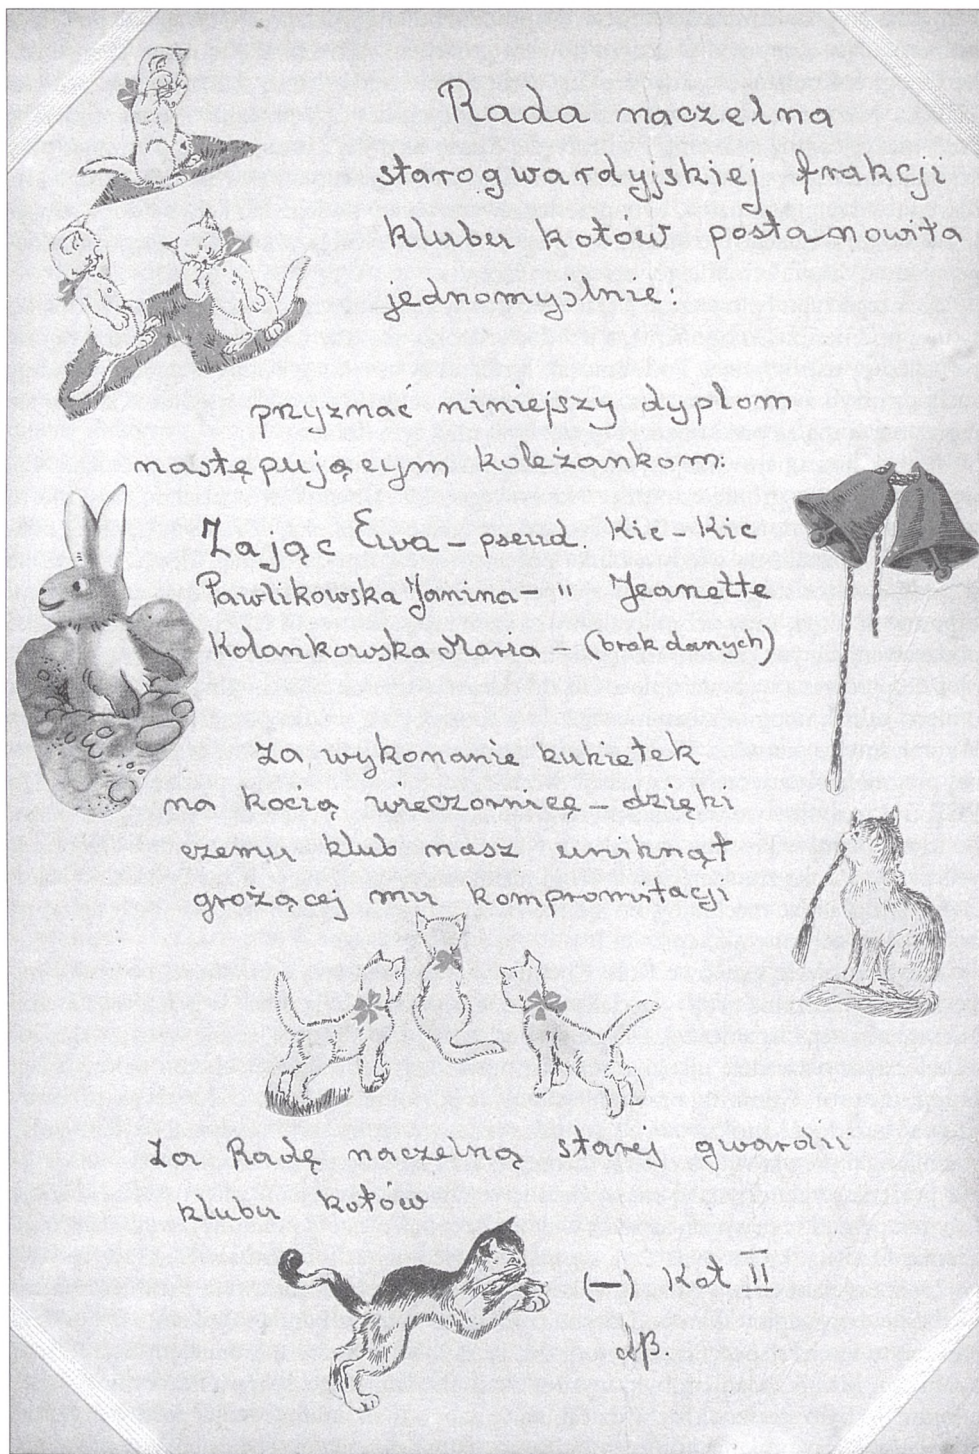 Rada naczelna
starogwardyjskiej frakcji
klubu kotów postanowiła
jednomyslnie:
przyznać niniejszy dyplom
następującym koleżankom:
Zając Ewa – pseud. Kic – Kic
Pawlikowska Janina – " Jeanette
Kolankowska Maria – (brak danych)
Za wykonanie kukiełek
na kocią wieczornicę – dzięki
czemu klub nasz uniknął
grożącej mu kompromitacji
Za Radę naczelną starej gwardii
klubu kotów
(—) Kot II